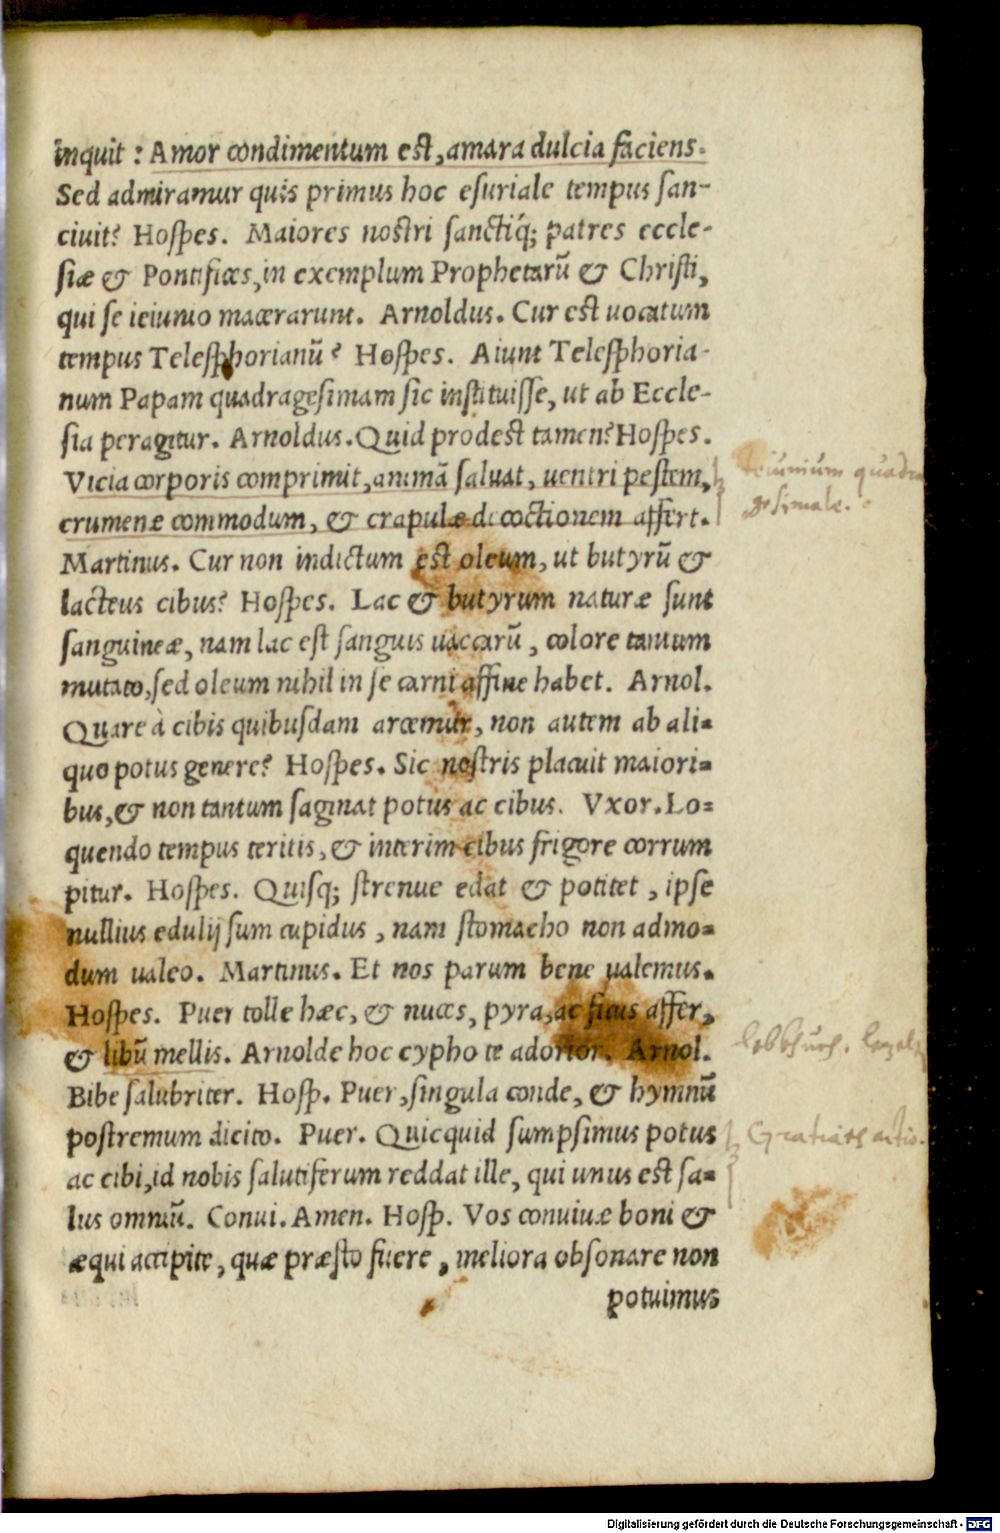 inquit : Amor condimentum est, amara dulcia faciens.
Sed admiramur quis primus hoc esuriale tempus san-
ciuit? Hospes. Maiores nostri sanctiq́; patres eccle-
siæ & Pontifices, in exemplum Prophetarũ & Christi,
qui se ieiunio macerarunt. Arnoldus. Cur est uocatum
tempus Telesphorianũ? Hospes. Aiunt Telesphoria-
num Papam quadragesimam sic instituisse, ut ab Eccle-
sia peragitur. Arnoldus. Quid prodest tamen? Hospes.
Vicia corporis comprimit, animã saluat, uentri pestem,
crumenæ commodum, & crapulæ decoctionem affert.
Martinus. Cur non indictum est oleum, ut butyrũ &
lacteus cibus? Hospes. Lac & butyrum naturæ sunt
sanguineæ, nam lac est sanguis uaccarũ, colore tantum
mutato, sed oleum nihil in se carni affine habet. Arnol.
Quare à cibis quibusdam arcemur, non autem ab ali=
quo potus genere? Hospes. Sic nostris placuit maiori=
bus, & non tantum saginat potus ac cibus. Vxor. Lo=
quendo tempus teritis, & interim cibus frigore corrum
pitur. Hospes. Quisq; strenue edat & potitet, ipse
nullius edulij sum cupidus, nam stomacho non admo=
dum ualeo. Martinus. Et nos parum bene ualemus.
Hospes. Puer tolle hæc, & nuces, pyra, ac ficus affer,
& libũ mellis. Arnolde hoc cypho te adortor. Arnol.
Bibe salubriter. Hosp. Puer, singula conde, & hymnũ
postremum dicito. Puer. Quicquid sumpsimus potus
ac cibi, id nobis salutiferum reddat ille, qui unus est sa=
lus omniũ. Conui. Amen. Hosp. Vos conuiuæ boni &
æqui accipite, quæ præsto fuere, meliora obsonare non
potuimus
ieiunium quadra
gesimale.
Gratiaes actio.
Digitalisierung gefördert durch die Deutsche Forschungsgemeinschaft - DFG